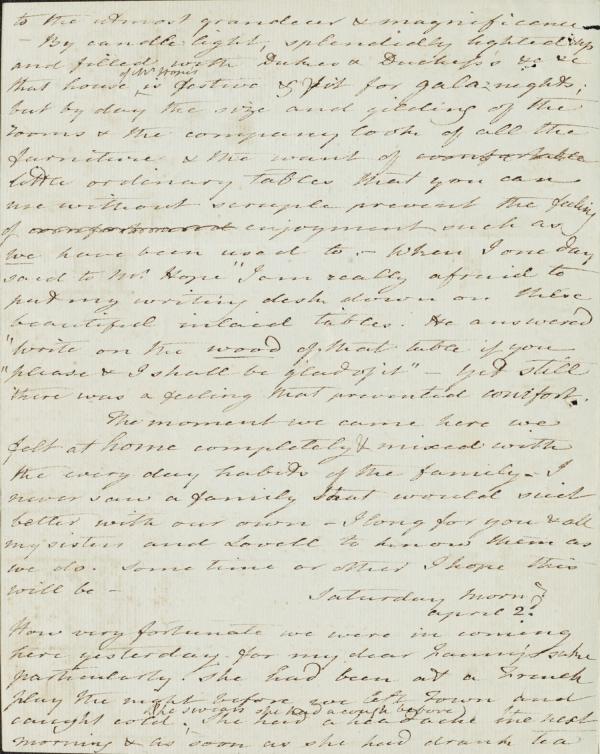 to the utmost grandeur & magnificence
- By candle light, splendidly lighted up
and filled with Dukes & Duchess's &c &c
that house of Mr Hope's is festive & fit for gala-nights;
but by day the size and gilding of the
rooms & the company look of all the
furniture & the want of comfortable
little ordinary tables that you can
use without scruple prevent the feeling
of comfort and enjoyment such as
we have been used to. - When I one day
said to Mr Hope "I am really afraid to
put my writing desk down on these
beautiful inlaid tables. He answered
"Write on the wood of that table if you
"please & I shall be glad of it" - yet still
there was a feeling that prevented comfort.
The moment we came here we
felt at home completely & mixed with
the every day habits of the family - I
never saw a family that would suit
better with our own - I long for you & all
my sisters and Lovell to know them as
we do. Some time or other I hope this
will be -
Saturday morng
April 2d
How very fortunate we were in coming
here yesterday for my dear Fanny's sake
particularly. She had been at a French
play the night before we left Town and
caught cold, (he swears she had a cough before) She had a headache the next
morning & as soon as she had drank tea